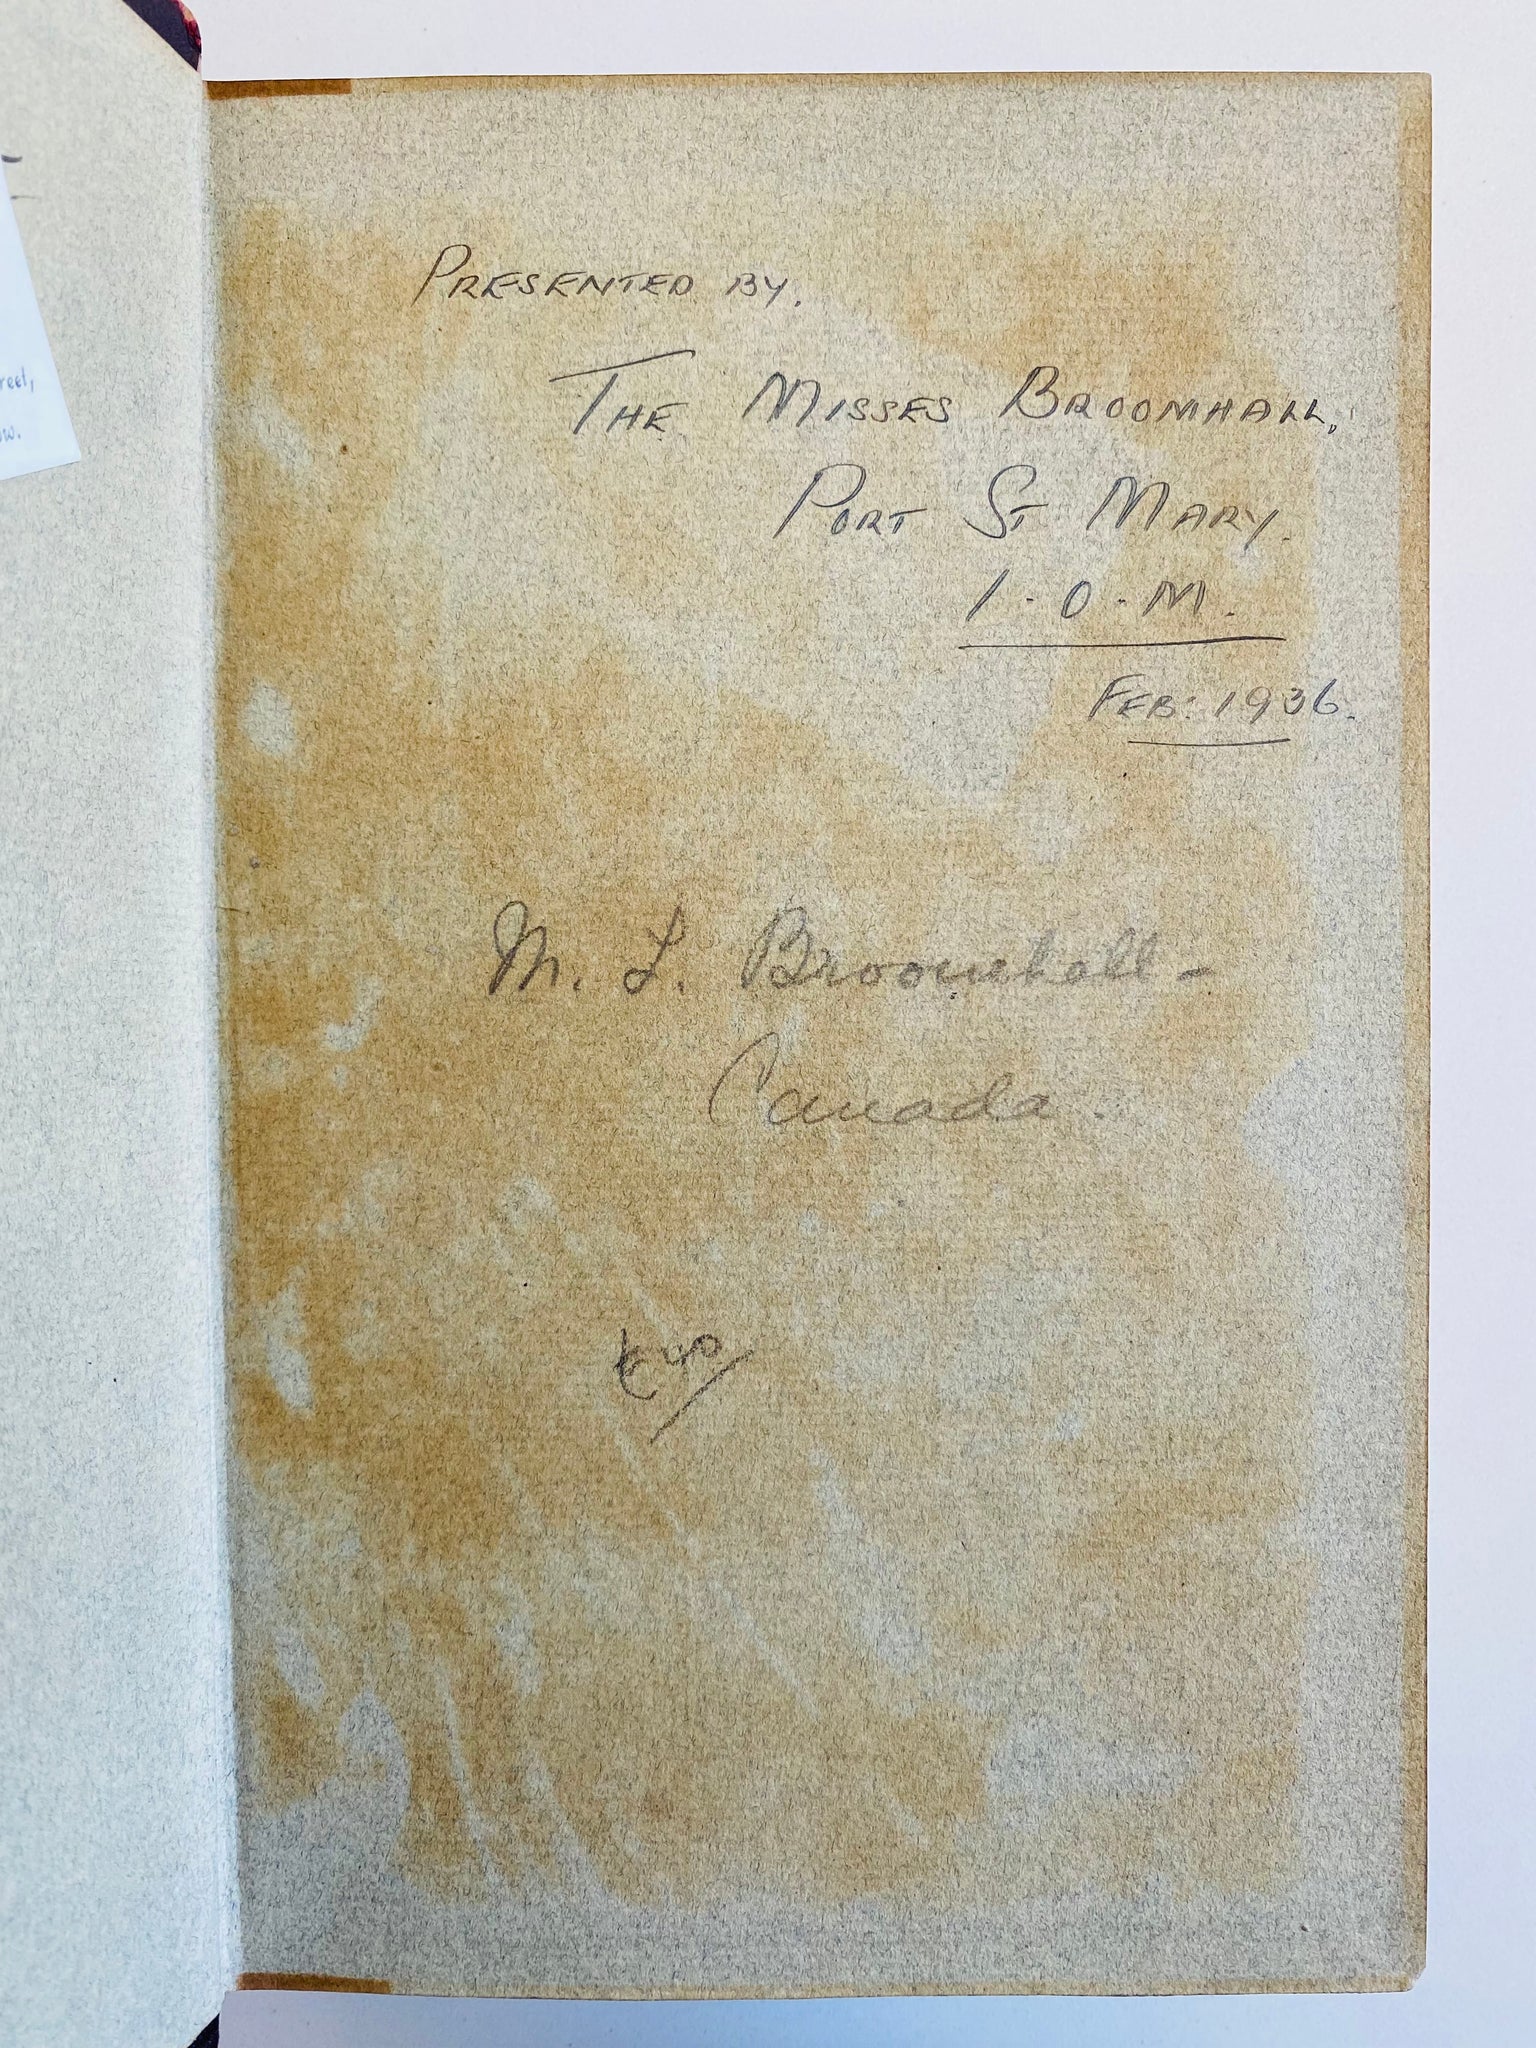 reet,
ow.
PRESENTED BY.
THE MISSES BROOMHALL,
PORT ST MARY.
I.O.M.
FEB: 1936.
M. L. Broomhall -
Canada.
£40/